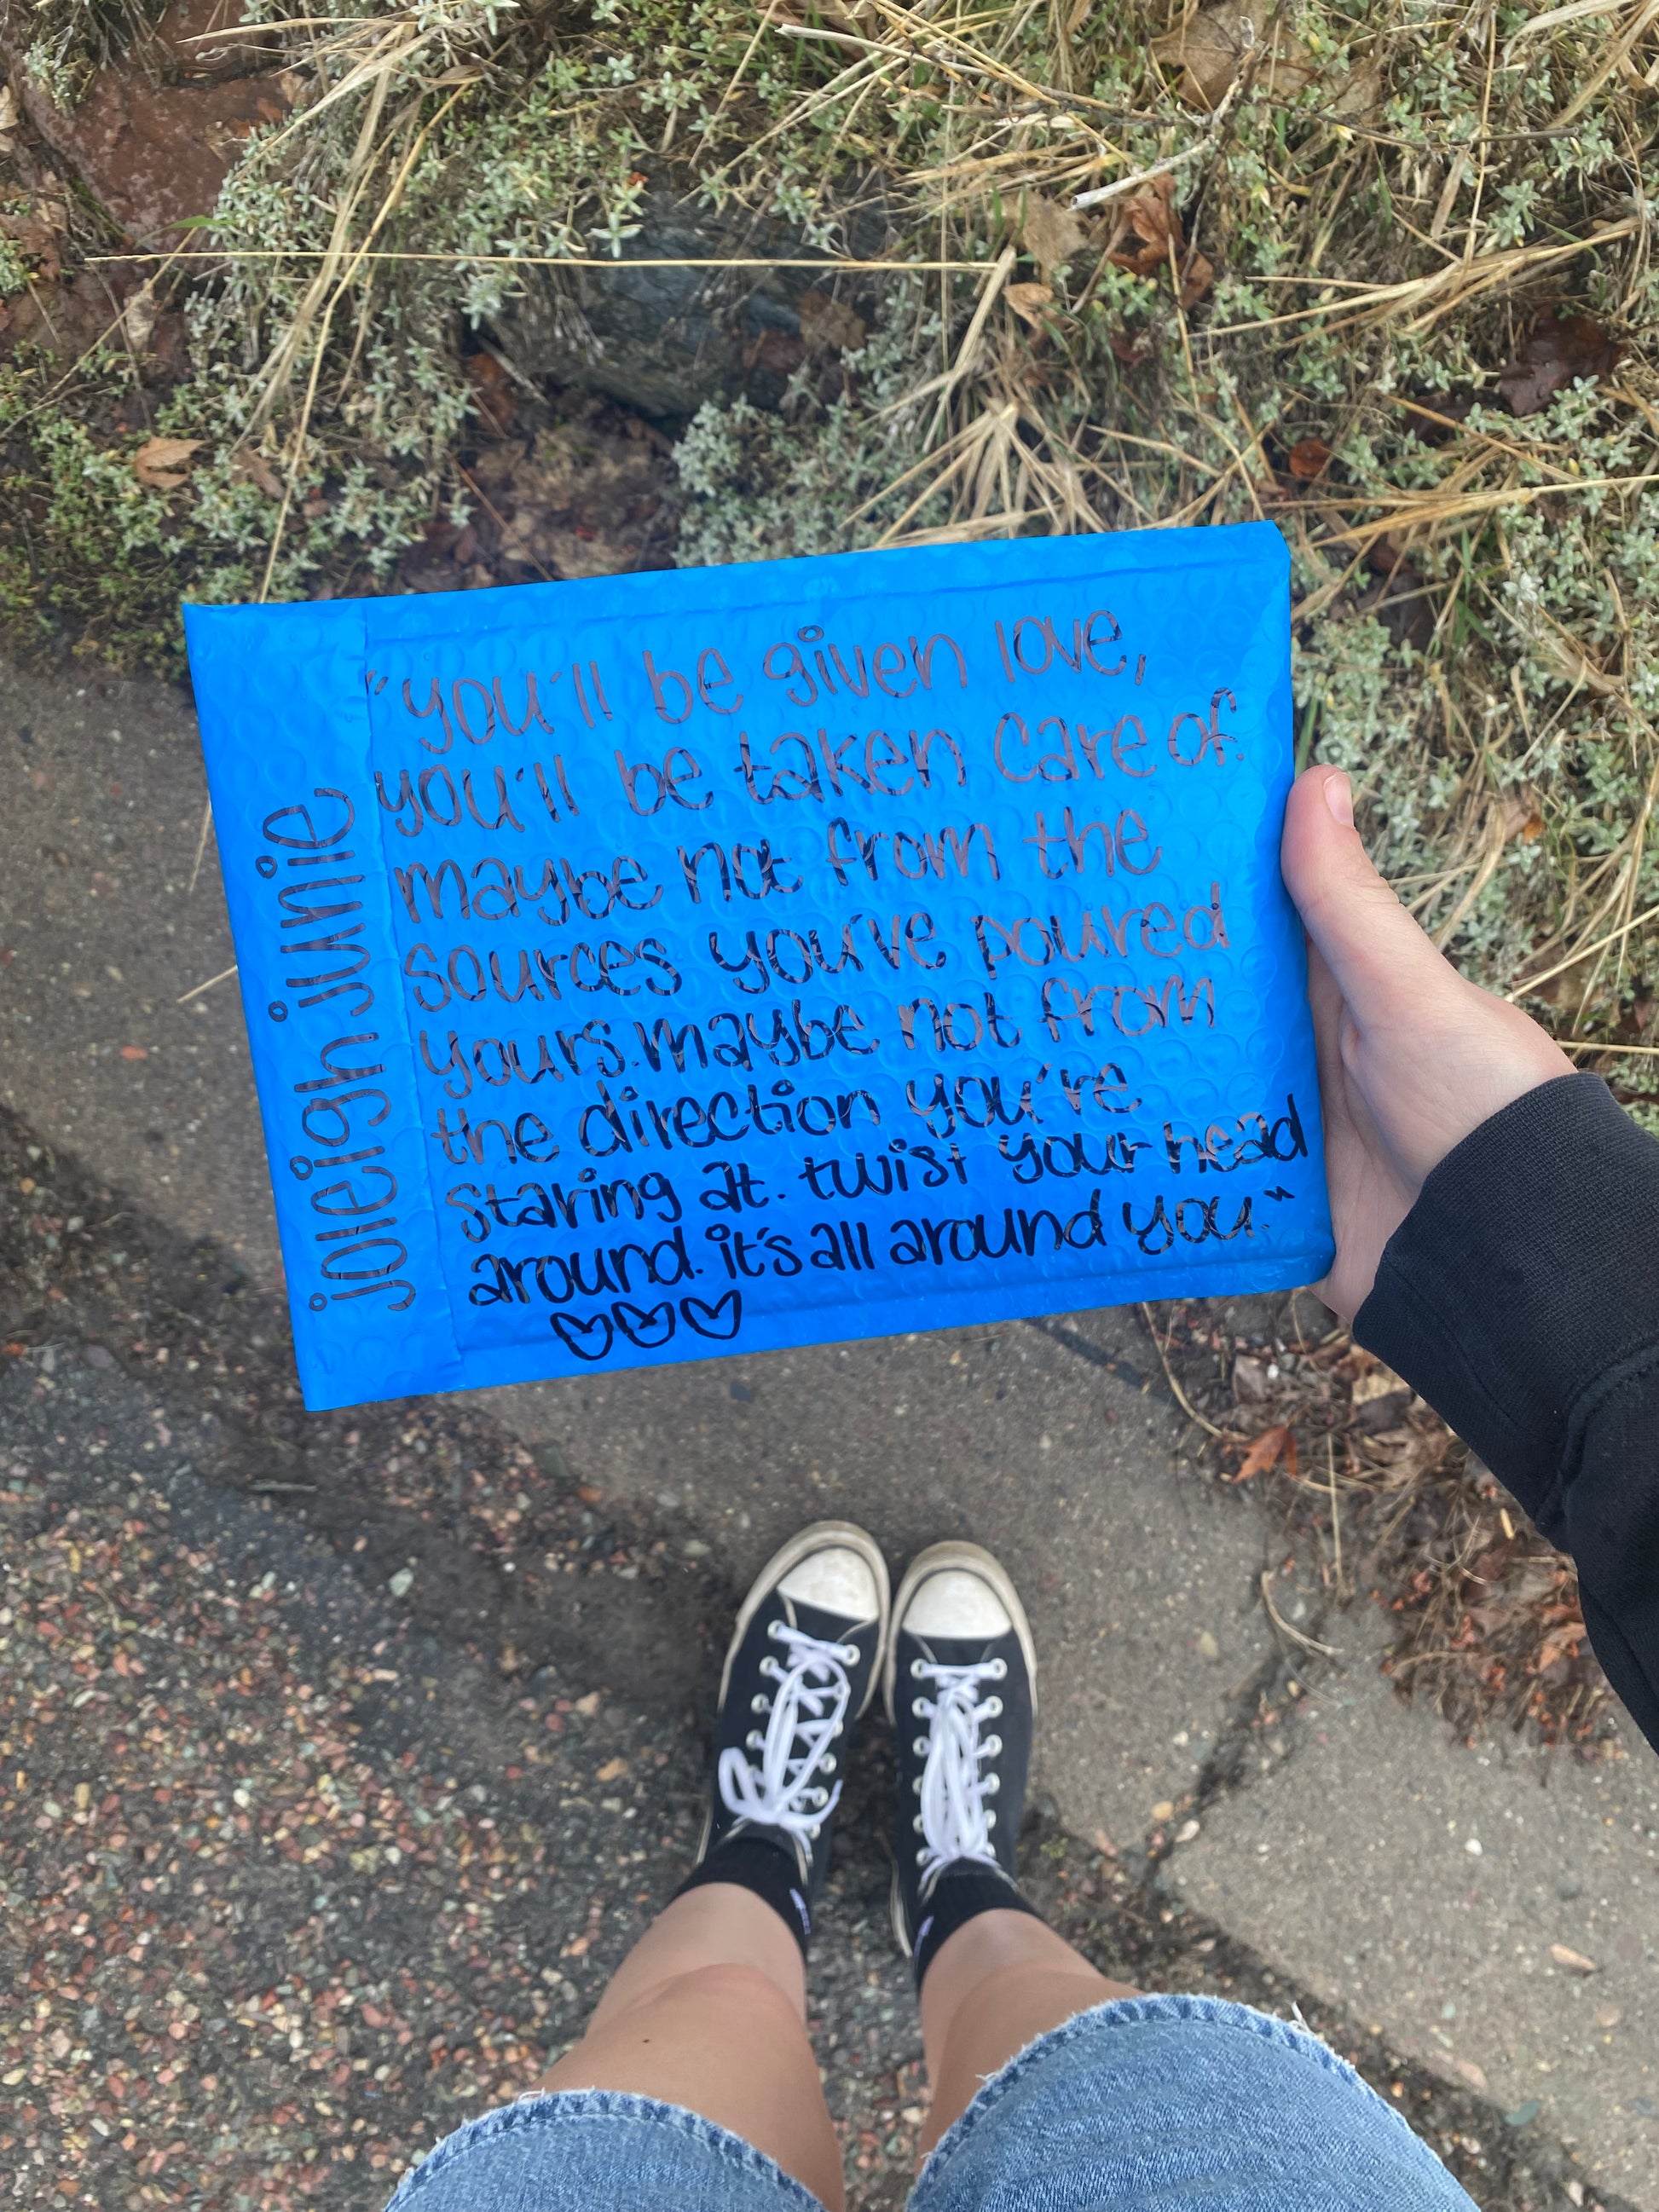 "you'll be given love,
you'll be taken care of.
maybe not from the
sources you've poured
yours. maybe not from
the direction you're
staring at. twist your head
around. it's all around you."
joleigh junie